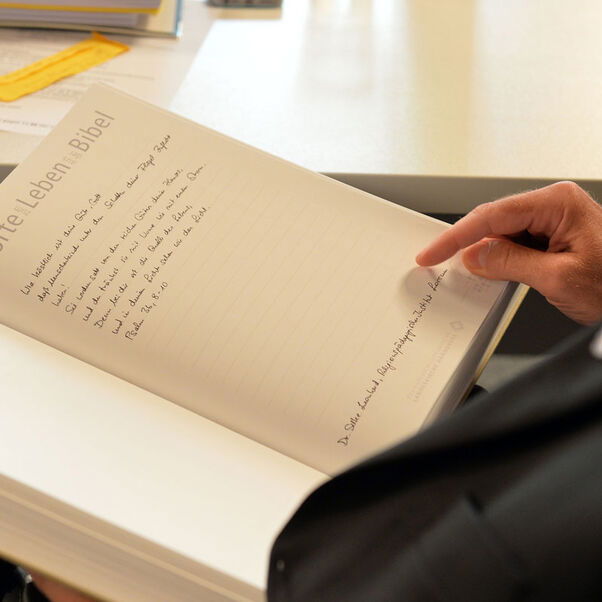 orte zum Leben aus der Bibel
Wie köstlich ist deine Güte, Gott
daß Menschenkinder unter dem Schatten deiner Flügel Zuflucht
haben!
Sie werden satt von den reichen Gütern deines Hauses,
und du tränkst sie mit Wonne wie mit einem Strom.
Denn bei dir ist die Quelle des Lebens,
und in deinem Lichte sehen wir das Licht.
Psalm 36, 8-10
Dr. Silke Leonhard, Religionspädagogisches Institut Loccum